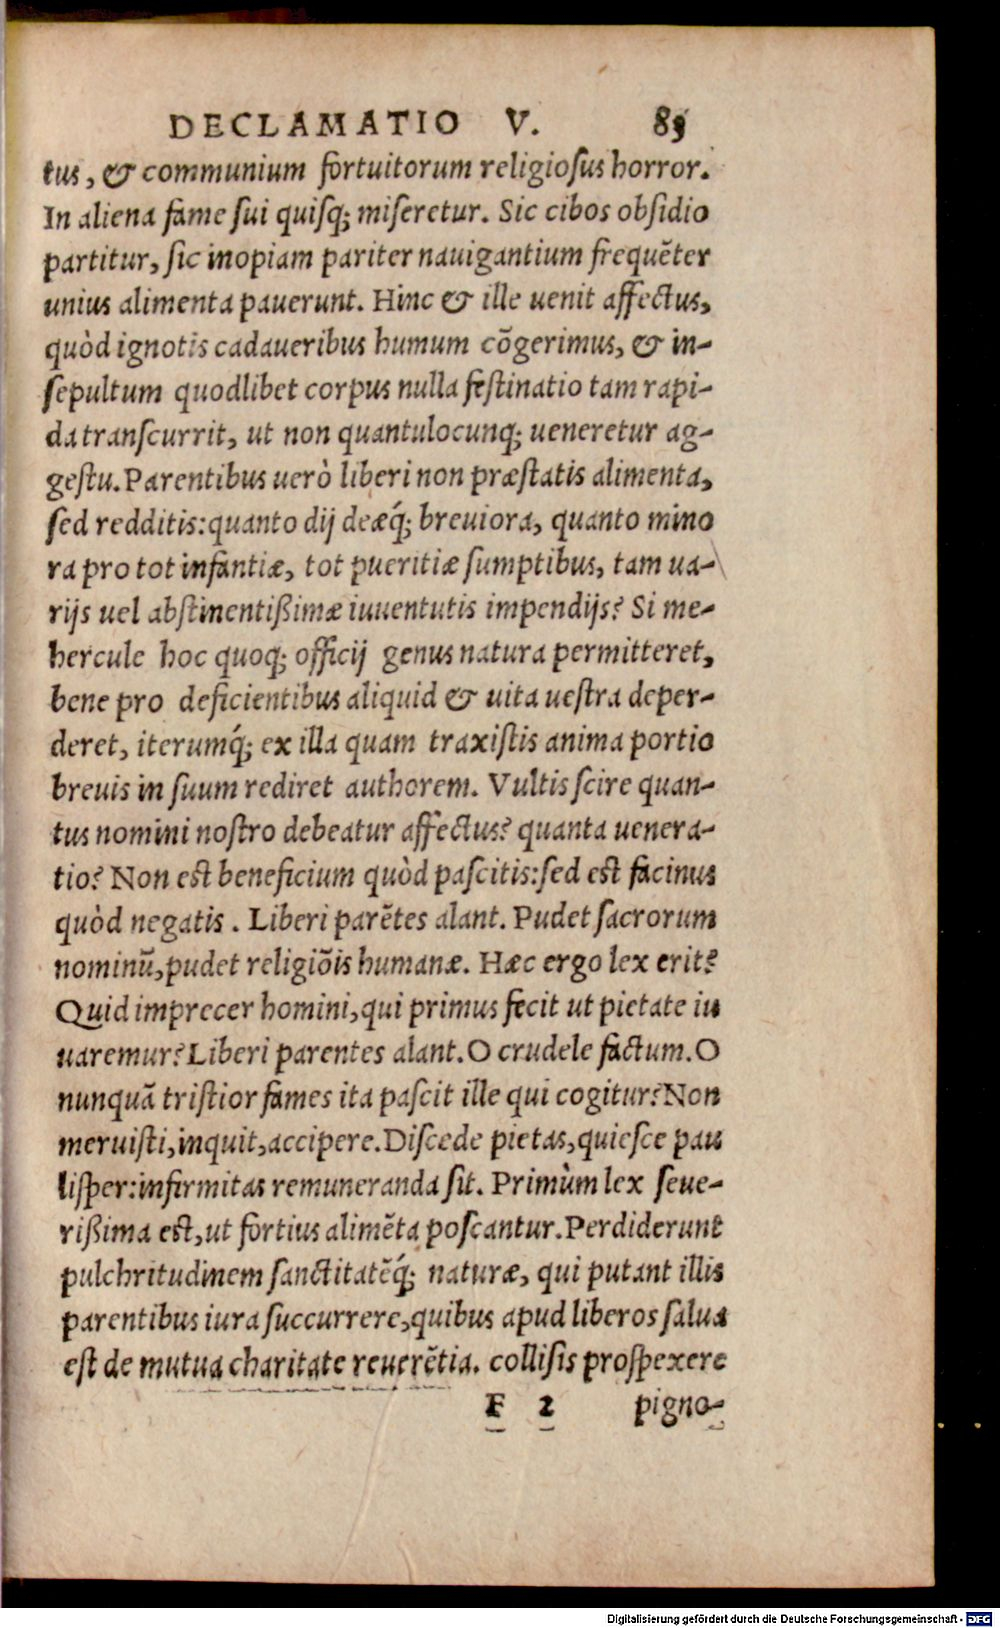 DECLAMATIO V. 83
tus, & communium fortuitorum religiosus horror.
In aliena fame sui quisq; miseretur. Sic cibos obsidio
partitur, sic inopiam pariter nauigantium frequẽter
unius alimenta pauerunt. Hinc & ille uenit affectus,
quòd ignotis cadaueribus humum cõgerimus, & in-
sepultum quodlibet corpus nulla festinatio tam rapi-
da transcurrit, ut non quantulocunq; ueneretur ag-
gestu. Parentibus uerò liberi non præstatis alimenta,
sed redditis: quanto dij deæq́; breuiora, quanto mino
ra pro tot infantiæ, tot pueritiæ sumptibus, tam ua-
rijs uel abstinentißimæ iuuentutis impendijs? Si me-
hercule hoc quoq; officij genus natura permitteret,
bene pro deficientibus aliquid & uita uestra deper-
deret, iterumq́; ex illa quam traxistis anima portio
breuis in suum rediret authorem. Vultis scire quan-
tus nomini nostro debeatur affectus? quanta uenera-
tio? Non est beneficium quòd pascitis: sed est facinus
quòd negatis. Liberi parẽtes alant. Pudet sacrorum
nominũ, pudet religiõis humanæ. Hæc ergo lex erit?
Quid imprecer homini, qui primus fecit ut pietate iu
uaremur? Liberi parentes alant. O crudele factum. O
nunquã tristior fames ita pascit ille qui cogitur? Non
meruisti, inquit, accipere. Discede pietas, quiesce pau
lisper: infirmitas remuneranda sit. Primùm lex seue-
rißima est, ut fortius alimẽta poscantur. Perdiderunt
pulchritudinem sanctitatẽq́; naturæ, qui putant illis
parentibus iura succurrere, quibus apud liberos salua
est de mutua charitate reuerẽtia. collisis prospexere
F 2 pigno-
Digitalisierung gefördert durch die Deutsche Forschungsgemeinschaft - DFG